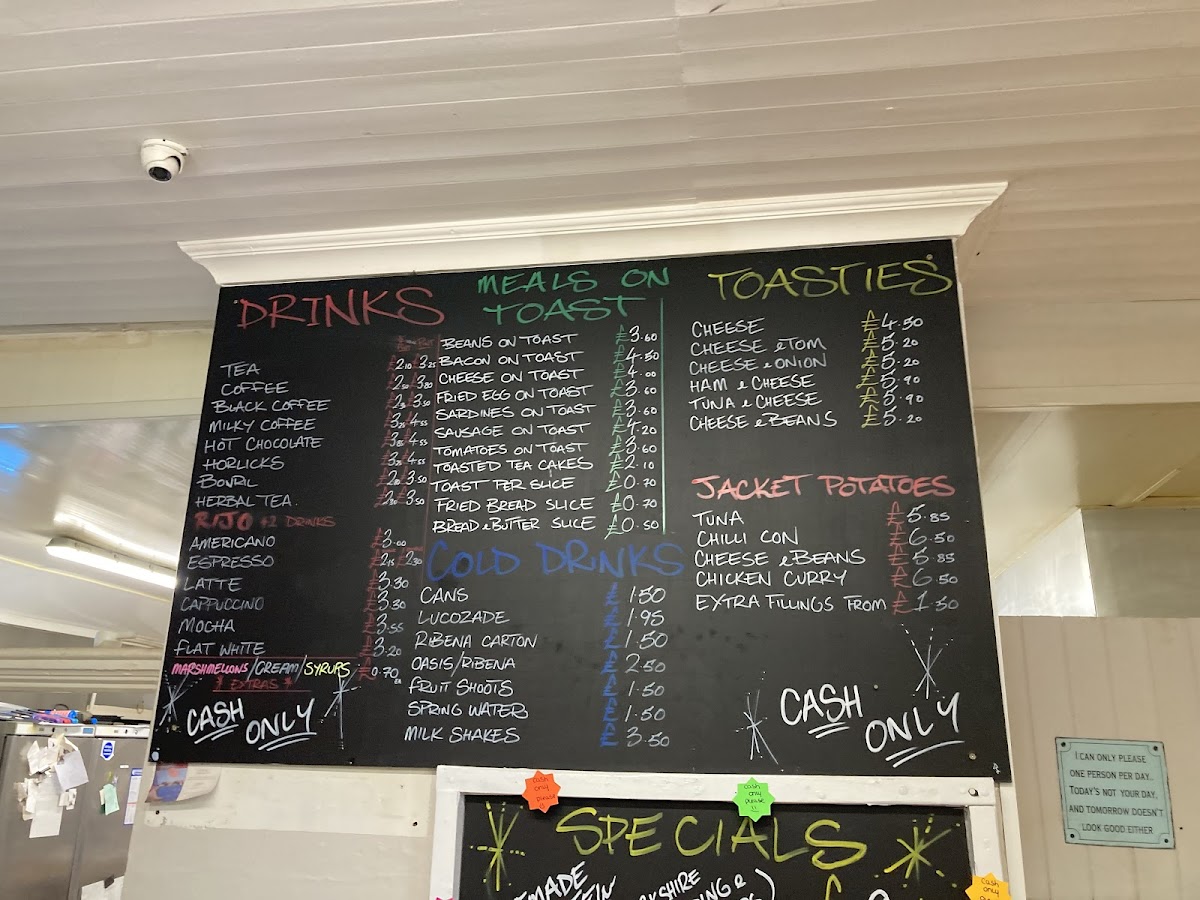 DRINKS
TEA £2.10 £3.25
COFFEE
BLACK COFFEE
MILKY COFFEE
HOT CHOCOLATE
HORLICKS
BOVRIL
HERBAL TEA.
RIJO +2 DRINKS
AMERICANO £3.00
ESPRESSO
LATTE £3.30
CAPPUCCINO £3.30
MOCHA £3.55
FLAT WHITE £3.20
MARSHMELLONS/CREAM/SYRUPS £0.70 EA
* EXTRAS *
CASH ONLY
MEALS ON
TOAST
BEANS ON TOAST £3.60
BACON ON TOAST £4.50
CHEESE ON TOAST £4.00
FRIED EGG ON TOAST £3.60
SARDINES ON TOAST £3.60
SAUSAGE ON TOAST £4.20
TOMATOES ON TOAST £3.60
TOASTED TEA CAKES £2.10
TOAST PER SLICE £0.70
FRIED BREAD SLICE £0.70
BREAD & BUTTER SLICE £0.50
COLD DRNKS
CANS £1.50
LUCOZADE £1.95
RIBENA CARTON £1.50
OASIS/RIBENA £2.50
FRUIT SHOOTS £1.50
SPRING WATERS £1.50
MILK SHAKES £3.50
TOASTIES
CHEESE £4.50
CHEESE & TOM £5.20
CHEESE & ONION £5.20
HAM & CHEESE £5.90
TUNA & CHEESE £5.90
CHEESE & BEANS £5.20
JACKET POTATOES
TUNA £5.85
CHILLI CON £6.50
CHEESE & BEANS £5.85
CHICKEN CURRY £6.50
EXTRA FILLINGS FROM £1.50
CASH ONLY
cash
only
please
!!
cash
only
please
!!
SPECIALS
cash
only
I CAN ONLY PLEASE
ONE PERSON PER DAY..
TODAY'S NOT YOUR DAY,
AND TOMORROW DOESN'T
LOOK GOOD EITHER